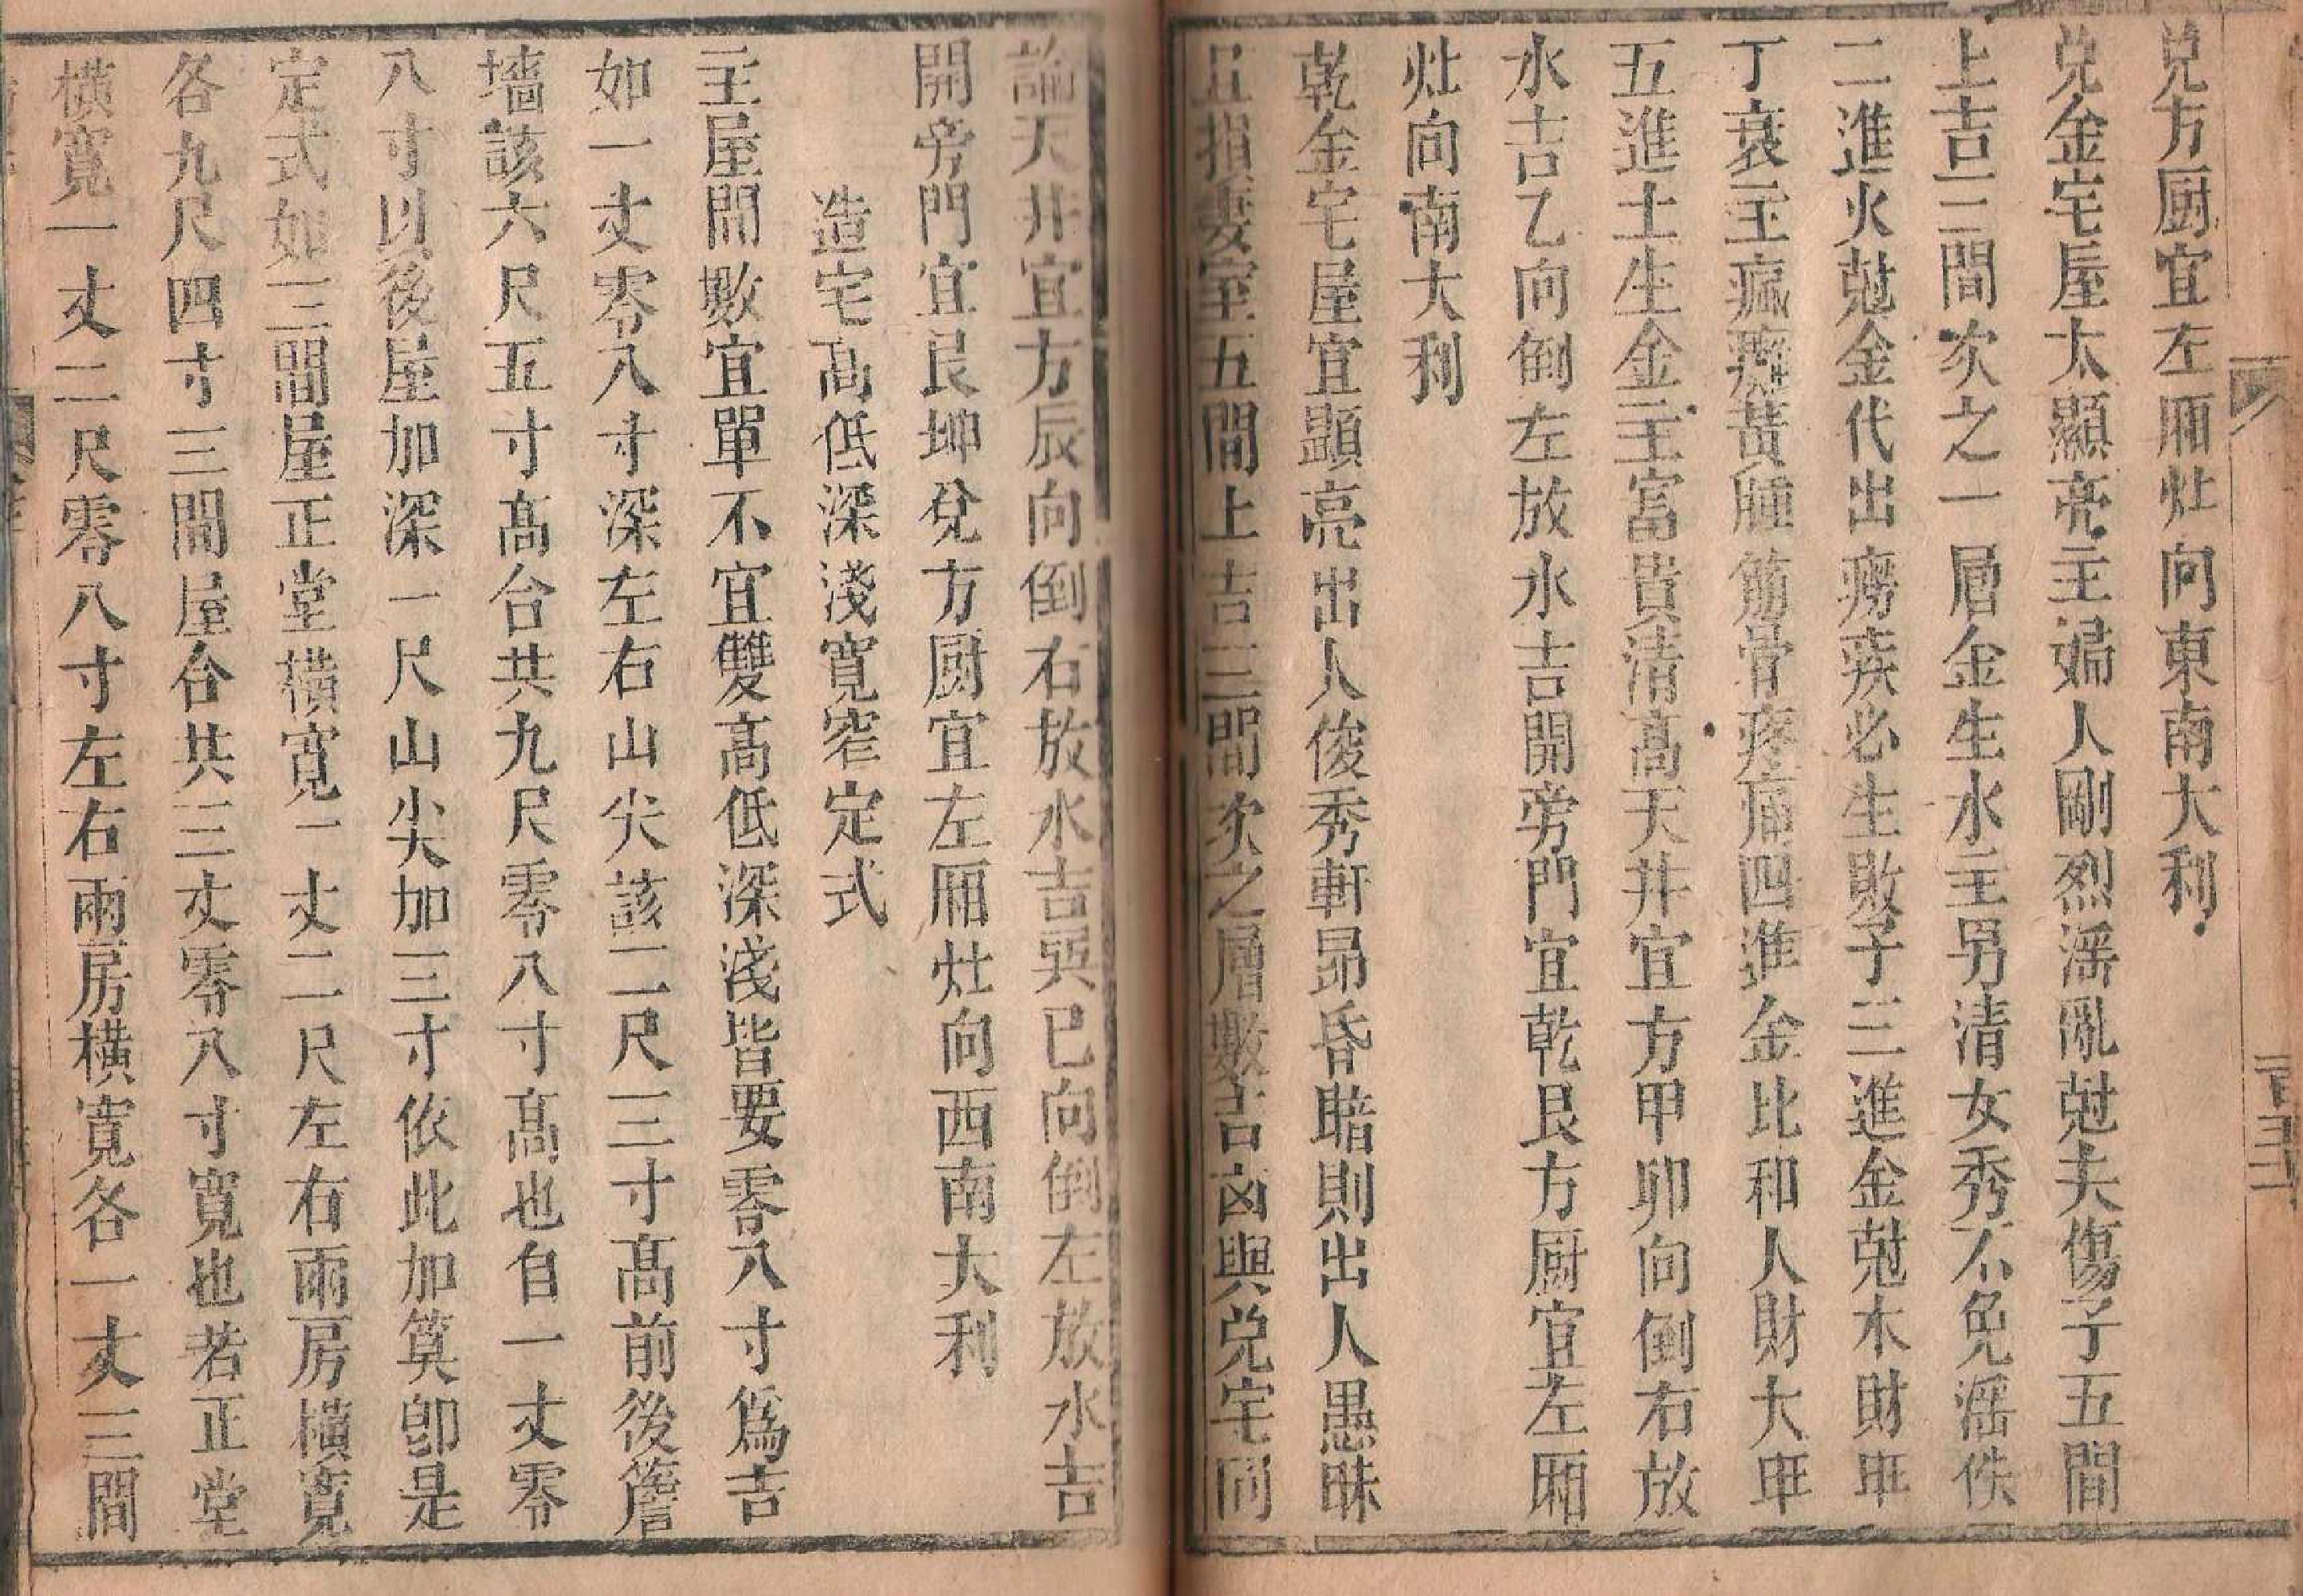 兌方厨宜左廂灶向東南大利
兌金宅屋太顯亮主婦人剛烈滛亂尅夫傷子五間
上吉三間次之一層金生水主男清女秀不免滛佚
二進火尅金代出癆疾必生敗子三進金尅木財旺
丁衰主瘋癱黃腫筋骨疼痛四進金比和人財大旺
五進土生金主富貴清高天井宜方甲卯向倒右放
水吉乙向倒左放水吉開旁門宜乾艮方厨宜左廂
灶向南大利
乾金宅屋宜顯亮出人俊秀軒昻昏暗則出人愚昧
且損妻室五間上吉三間次之層數吉凶與兌宅同
論天井宜方辰向倒右放水吉巽巳向倒左放水吉
開旁門宜艮坤兌方厨宜左廂灶向西南大利
造宅高低深淺寬窄定式
主屋間數宜單不宜雙高低深淺皆要零八寸爲吉
如一丈零八寸深左右山尖該二尺三寸高前後簷
墻該六尺五寸高合共九尺零八寸高也自一丈零
八寸以後屋加深一尺山尖加三寸依此加筭卽是
定式如三間屋正堂橫寬一丈二尺左右兩房橫寬
各九尺四寸三間屋合共三丈零八寸寬也若正堂
橫寬一丈二尺零八寸左右兩房橫寬各一丈三間